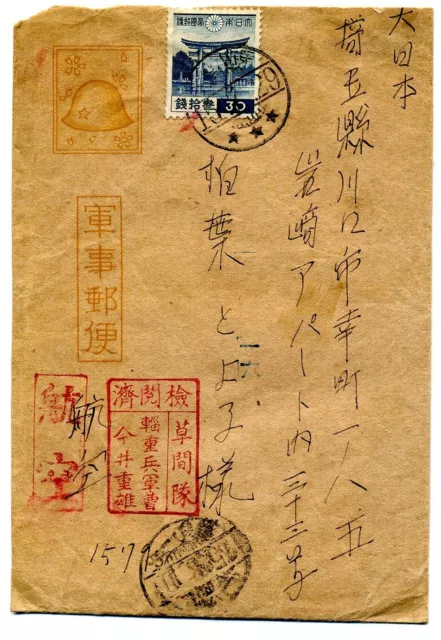 大日本
埼玉縣川口市幸町一ノ八五
岩崎アパート内三十三号
柏葉とよ子様
大日本帝國郵便
30
錢拾叄
軍事郵便
檢閲濟
草間隊
輜重兵軍曹
今井重雄
航空
航空